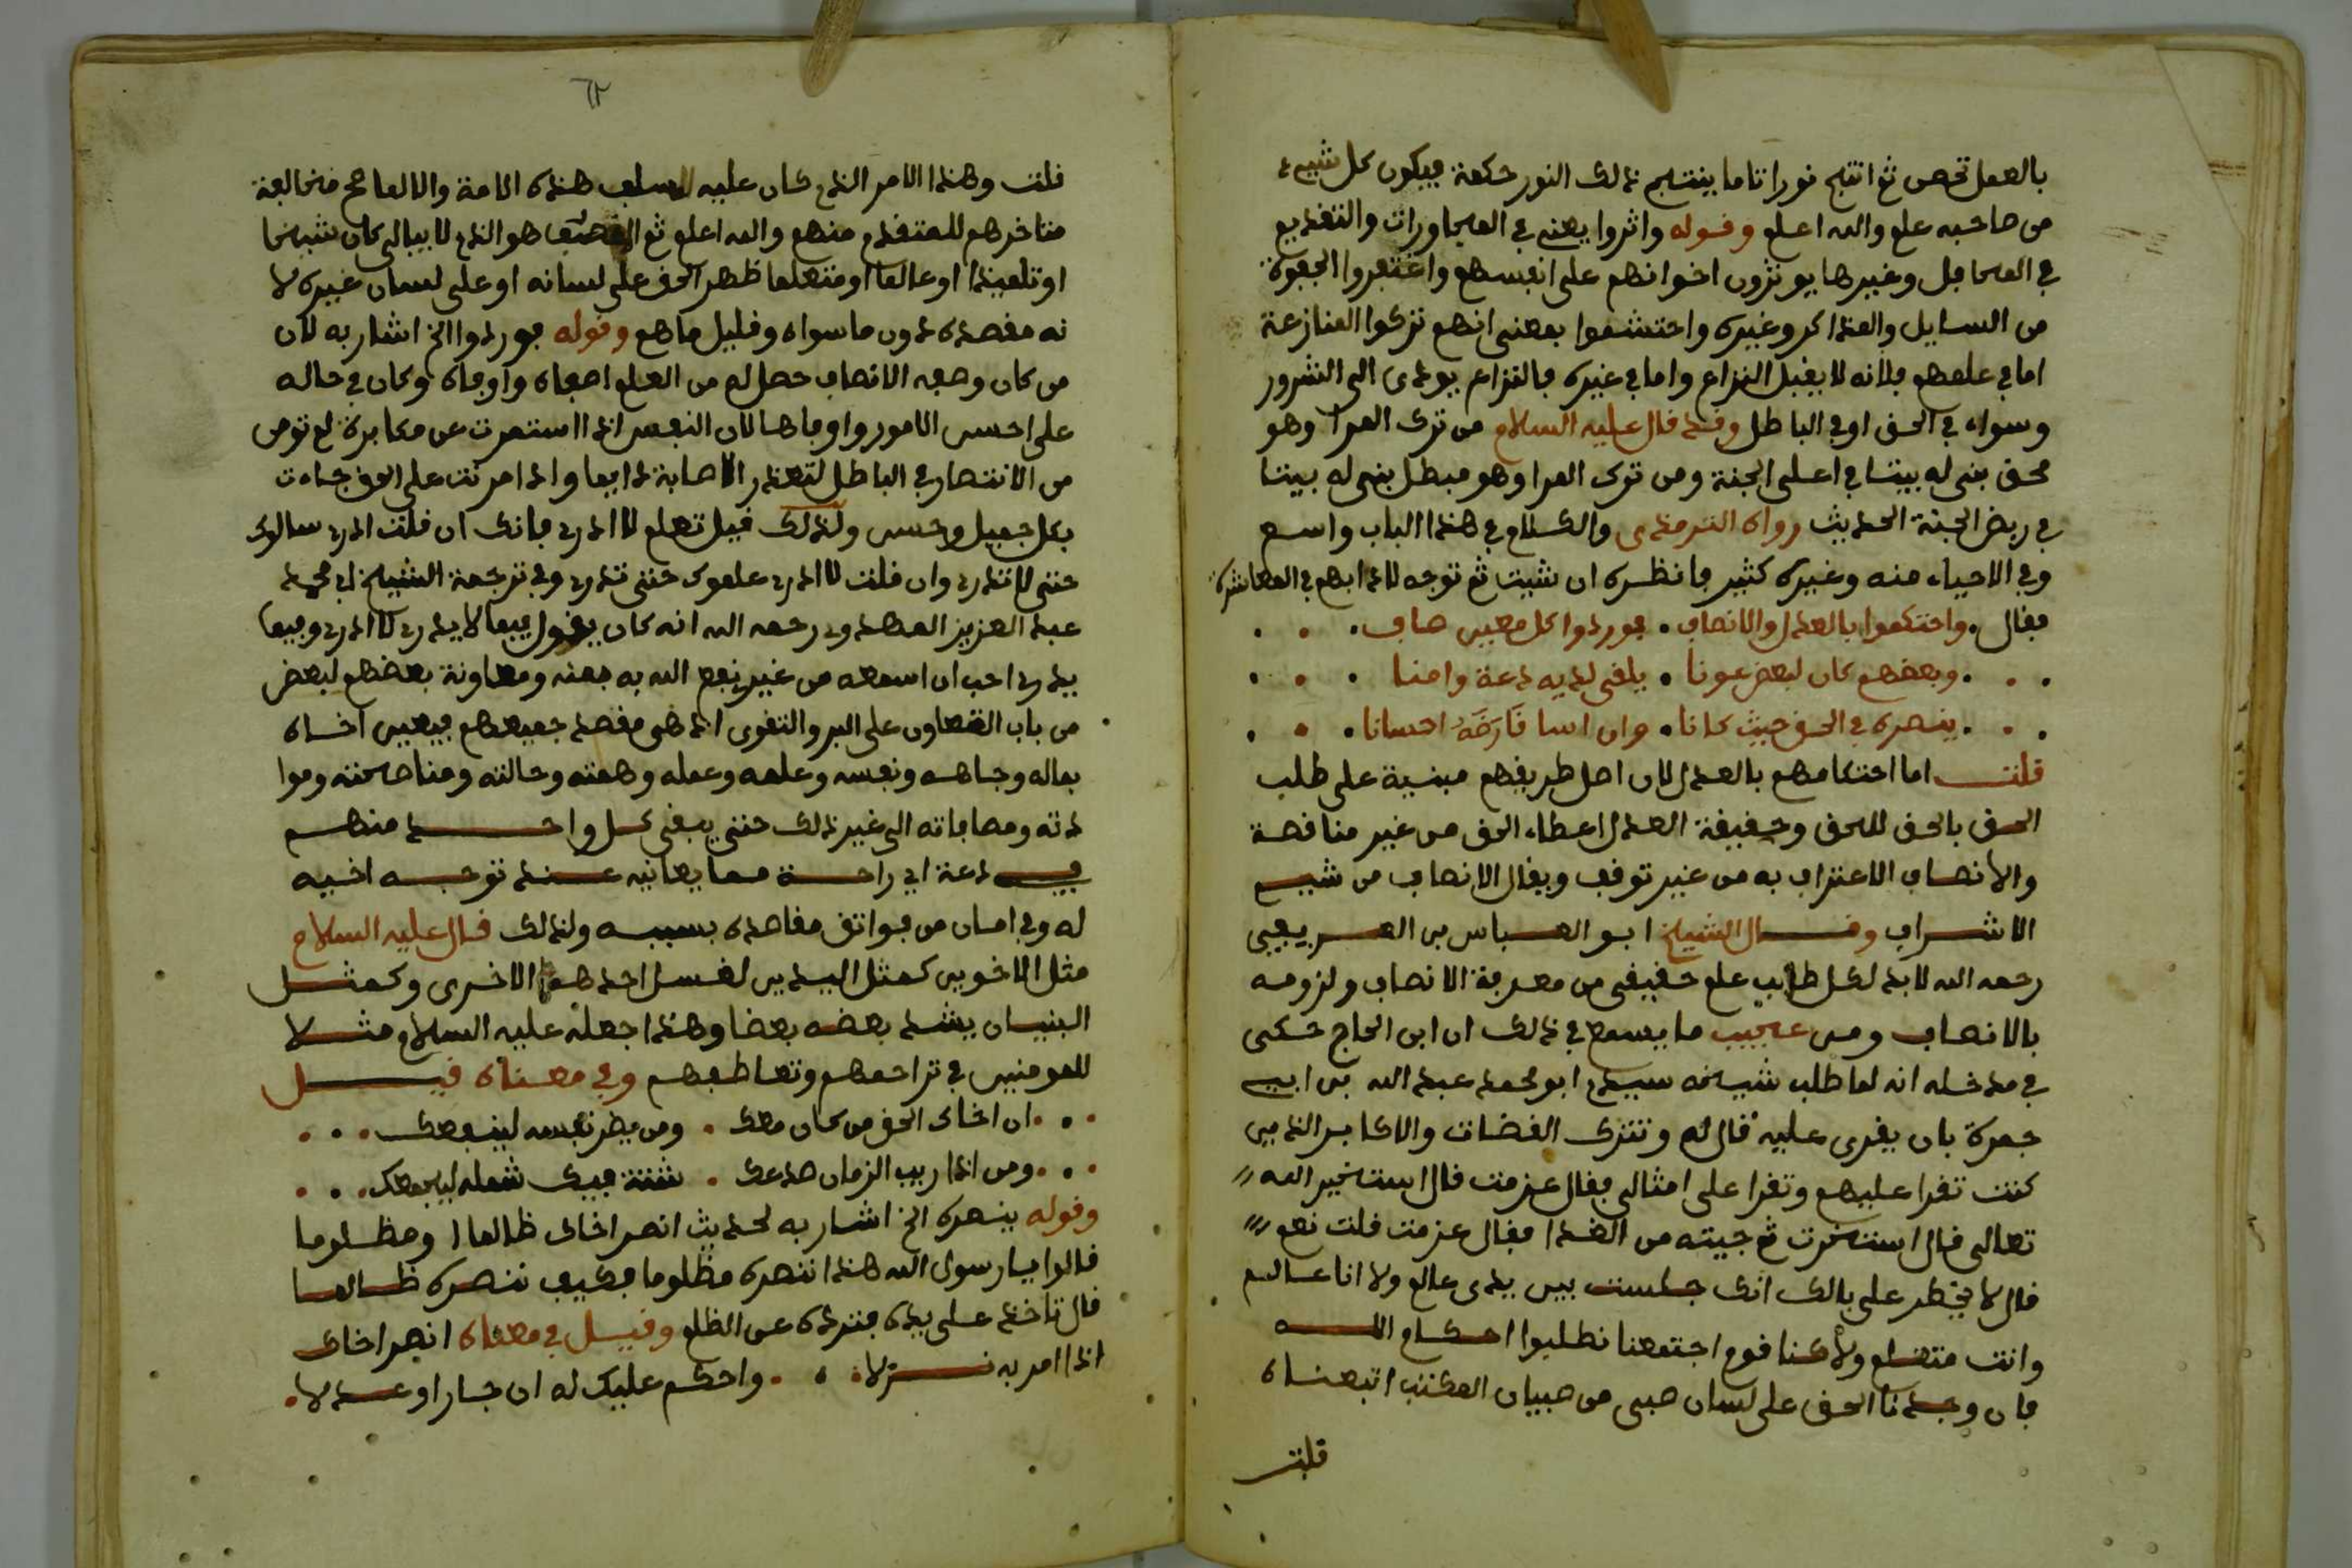 بالعمل تحصن ثم انتج نورا تاما ينتج ذلك النور حكمة فيكون كل شيء
من صاحبه علم والله اعلم وقوله واثروا يعني في المجاورات والتقديم
في المحافل وغيرها يوثرون اخوانهم على انفسهم واغتفروا الجفوة
من السايل والمذاكر وغيره واحتشموا بمعنى انهم تركوا المنازعة
اما في علمهم فلانه لا يقبل النزاع واما في غيره فالنزاع يودى الى الشرور
وسواء في الحق او في الباطل وقد قال عليه السلام من ترك المرا وهو
محق بنى له بيتا في اعلى الجنة ومن ترك المرا وهو مبطل بنى له بيتا
في ربض الجنة الحديث رواه الترمذى والكلام في هذا الباب واسع
وفي الاحياء منه وغيره كثير فانظره ان شيت ثم توجه لادابهم في المعاشرة
فقال . واحتكموا بالعدل والانصاف . فوردوا كل معين صاف .
وبعضهم كان لبعض عونا . يلفى لديه دعة وامنا .
ينصره في الحق حيث كانا . وان اسا فارضه احسانا .
قلت اما احتكامهم بالعدل لان اصل طريقهم مبنية على طلب
الحق بالحق للحق وحقيقة العدل اعطاء الحق من غير مناقصة
والانصاف الاعتراف به من غير توقف ويقال الانصاف من شيم
الاشراف وقال الشيخ ابو العباس بن العريف
رحمه الله لا بد لكل طالب علم حقيقى من معرفة الانصاف ولزومه
بالانصاف ومن عجيب ما يسمع في ذلك ان ابن الحاج حكى
في مدخله انه لما طلب شيخه سيدي ابو محمد عبد الله بن ابي
جمرة بان يقرى عليه قال له وتترك القضات والاكابر الذين
كنت تقرا عليهم وتقرا على امثالى فقال عزمت قال استخير الله
تعالى قال استخرت ثم جيته من الغد افقال عزمت قلت نعم
قال لا يخطر على بالك انك جلست بين يدى عالم ولا انا عالم
وانت متعلم ولاكنا قوم اجتمعنا نطلبوا احكام الله
فان وجدنا الحق على لسان صبى من صبيان المكتب اتبعناه
قلت
٦٢
قلت وهذا الامر الذي كان عليه سلف هذه الامة والا لما صح مخالفة
متاخرهم للمتقدم منهم والله اعلم ثم المصنف هو الذي لا يبالى كان شيخا
او تلميذا او عالما او متعلما ظهر الحق على لسانه او على لسان غيره لا
نه مقصده دون ما سواه وقليل ما هم وقوله فوردوا الخ اشار به لان
من كان وصفه الانصاف حصل له من العلم اصفاه واوفاه وكان في حاله
على احسن الامور واوفاها لان النفس اذا استمرت عن مكابرة لم تومن
من الانتصار في الباطل لتعذر الاصابة دايما واذا مرنت على الحق جاءت
بكل جميل وحسن ولذلك قيل تعلم لا ادري فانك ان قلت ادري سالوك
حتى لا تدري وان قلت لا ادري علموك حتى تدري وفي ترجمة الشيخ ابي محمد
عبد العزيز المهدوي رحمه الله انه كان يقول فيما لا يدري لا ادري وفيما
يدري احب ان اسمعه من غيري نفع الله به بمنه ومعاونة بعضهم لبعض
من باب التعاون على البر والتقوى اذ هى مقصد جميعهم فيعين اخاه
بماله وجاهه ونفسه وعلمه وعمله وهمته وحالته ومناصحته وموا
دته ومصافاته الى غير ذلك حتى يبقى كل واحد منهم
في دعة اي راحة مما يعانيه عند توجه اخيه
له وفي امان من فوائت مقاصده بسببه ولذلك قال عليه السلام
مثل الاخوين كمثل اليدين تغسل احدهما الاخرى وكمثل
البنيان يشد بعضه بعضا وهذا جعله عليه السلام مثلا
للمومنين في تراحمهم وتعاطفهم وفي معناه قيل
ان اخاك الحق من كان معك . ومن يضر نفسه لينفعك
ومن اذا ريب الزمان صدعك . شتت فيك شمله ليجمعك
وقوله ينصره الخ اشار به لحديث انصر اخاك ظالما او مظلوما
قالوا يا رسول الله هذا ننصره مظلوما فكيف ننصره ظالما
قال تاخذ على يده فترده عن الظلم وقيل في معناه انصر اخاك
اذا امر به نزلا . واحكم عليك له ان جار او عدلا .